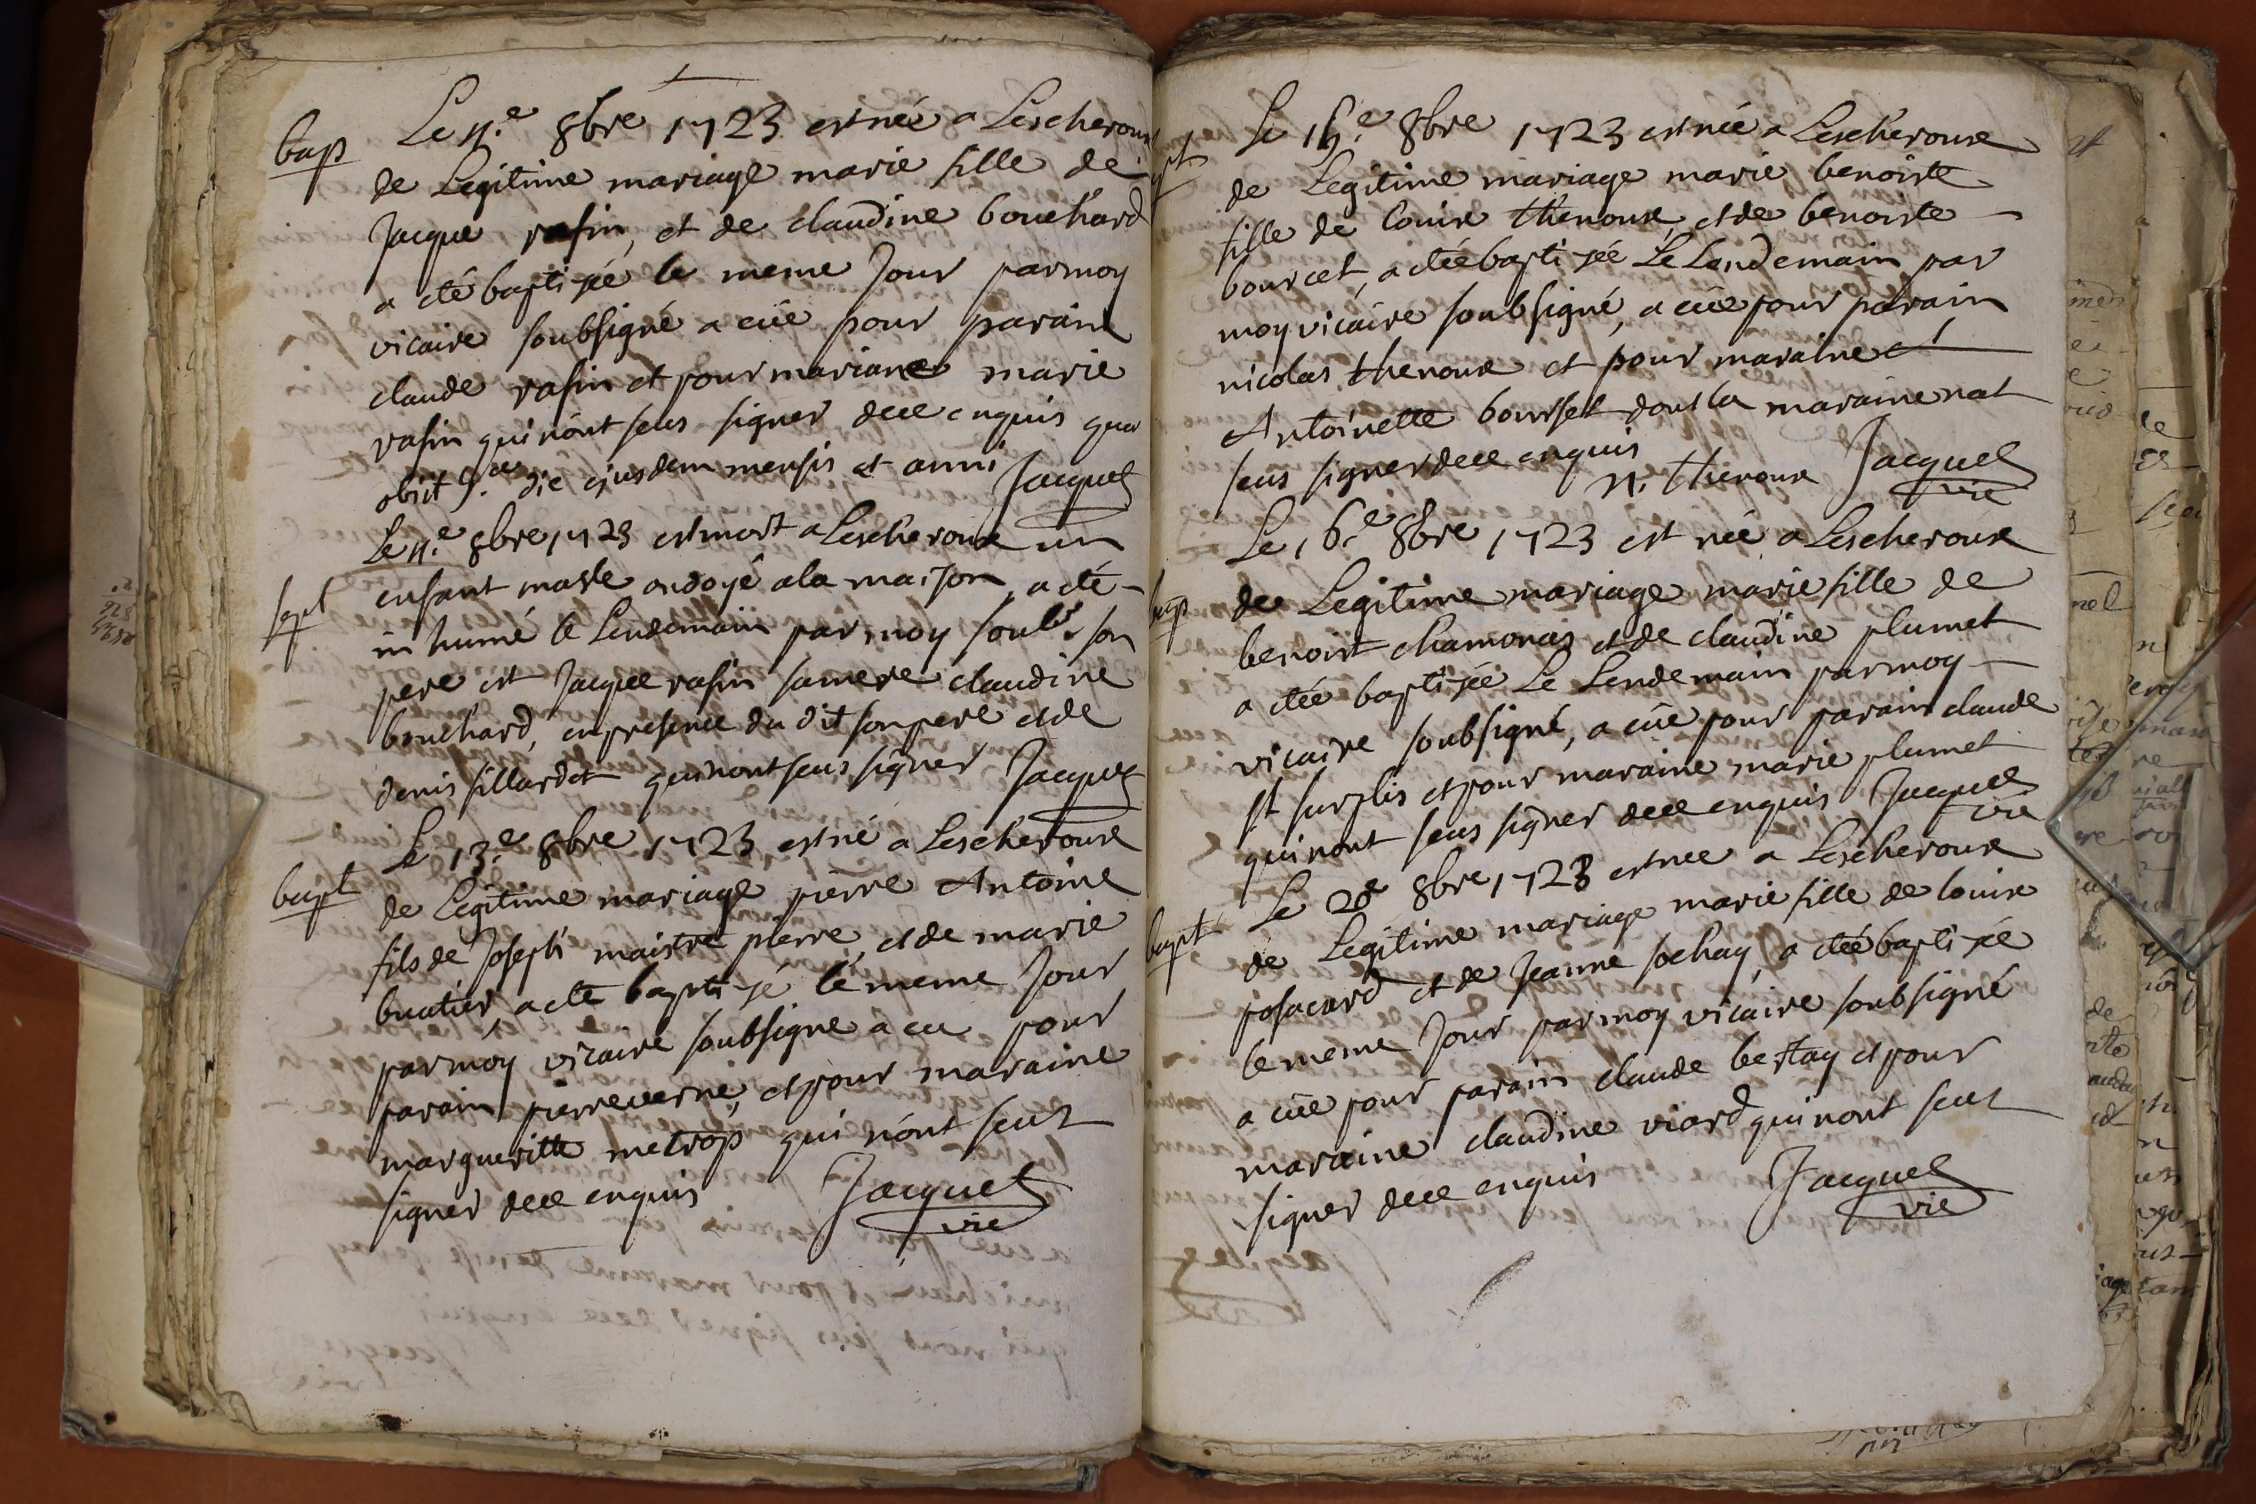 bap
Le 4.e 8bre 1723 est née a Lescheroux
de Legitime mariage marie fille de
Jacque rafin, et de claudine bouchard
a eté baptisée le meme Jour par moy
vicaire soubsigné a eüe pour parain
claude rafin et pour mariane marie
rafin qui nónt seus signer dece enquis quæ
obiit 9.a die ejusdem mensis et anni Jacquet
sept
Le 4.e 8bre 1723 est mort a Lescheroux un
enfant masle ondoyé a la maison, a eté
inhumé le Lendemain par moy soubs. son
pere est Jacque rafin sa mere claudine
bouchard, en presence du dit son pere et de
denis fillardet qui nont seus signer Jacquet
bapt
Le 13.e 8bre 1723 est né a Lescheroux
de Legitime mariage pierre Antoine
fils de Joseph maistre pierre, et de marie
buatier, a eté baptisé le meme Jour
par moy vicaire soubsigné a eu pour
parain pierre verne, et pour maraine
margueritte metrop qui nónt seus
signer dece enquis Jacquet
vic
pt
Le 16.e 8bre 1723 est née a Lescheroux
de Legitime mariage marie benoiste
fille de louis thenoux, et de benoiste
bourcet, a eteé baptisée Le Lendemain par
moy vicaire soubsigné, a eüe pour parain
nicolas thenoux et pour maraine
Antoinette bourset dont la maraine nat
seus signer dece enquis
N. thenoux Jacquet
vic
bap
Le 16.e 8bre 1723 est née a Lescheroux
de Legitime mariage marie fille de
benoist chamonas et de claudine plumet
a eteé baptisée Le Lendemain par moy
vicaire soubsigné, a eüe pour parain claude
st surplis et pour maraine marie plumet
qui nont seus signer dece enquis Jacquet
vic
bapt
Le 20e 8bre 1723 est neé a Lescheroux
de Legitime mariage marie fille de louis
posacard et de Jeanne sochay, a eteé baptisée
le meme Jour par moy vicaire soubsigné
a eüe pour parain claude bestay et pour
maraine claudine viard qui nont seus
signer dece enquis Jacquet
vic